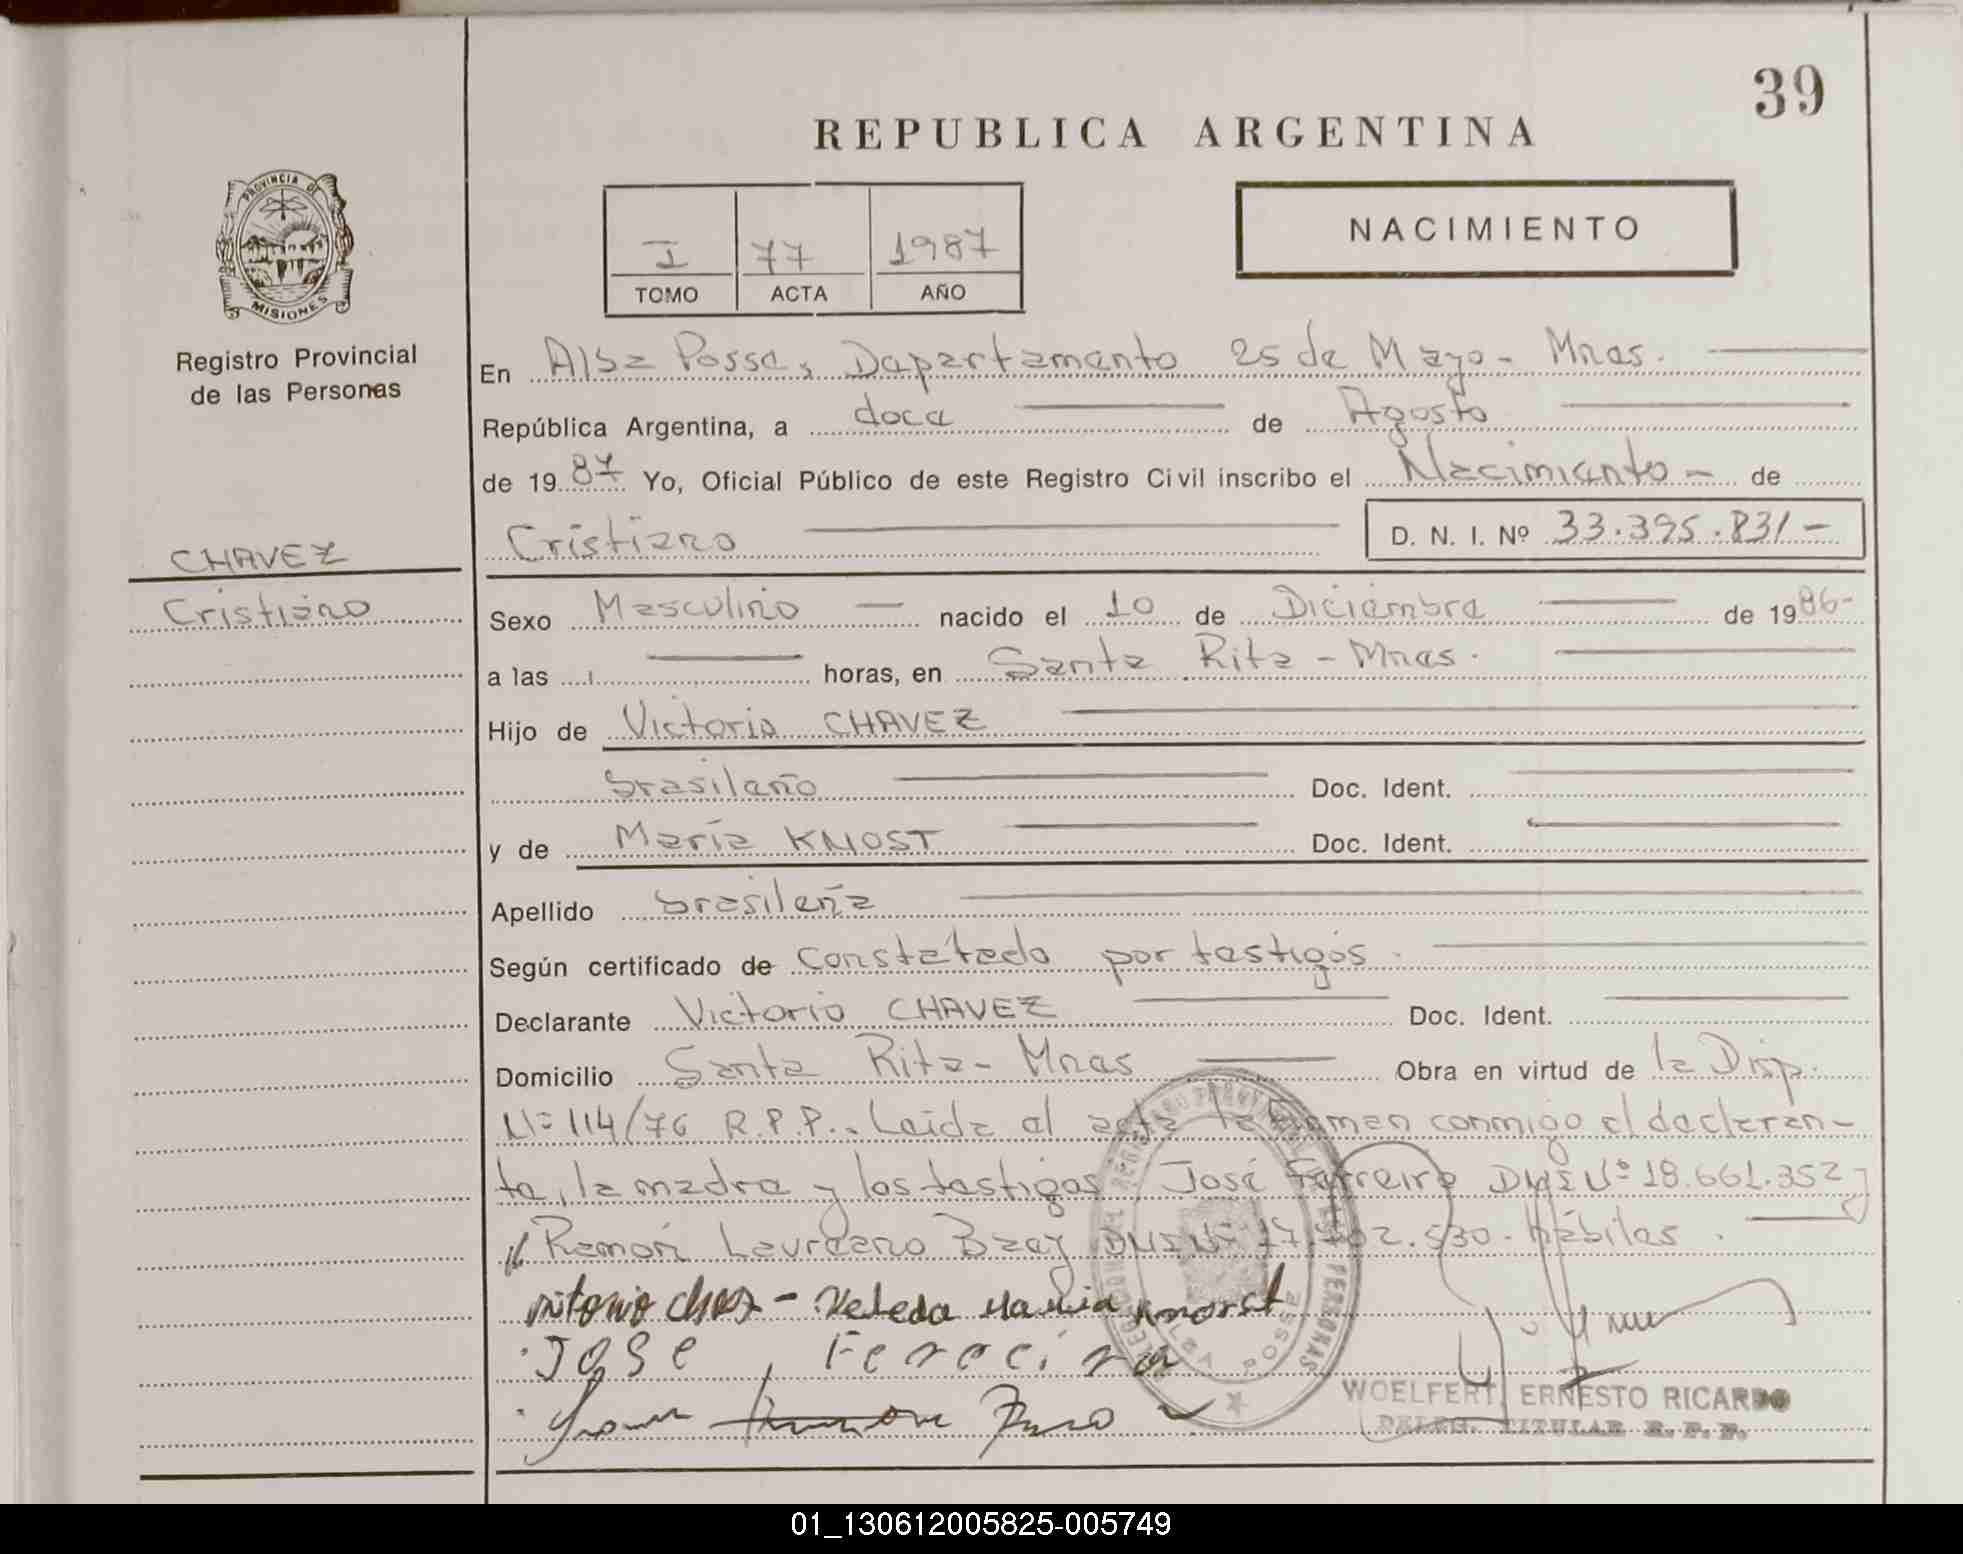 39
REPUBLICA ARGENTINA
PROVINCIA DE
MISIONES
Registro Provincial
de las Personas
I 77 1987
TOMO ACTA AÑO
NACIMIENTO
En Alba Posse, Departamento 25 de Mayo - Mnes.
República Argentina, a doce de Agosto
de 19 87 Yo, Oficial Público de este Registro Civil inscribo el Nacimiento - de
Cristiano D. N. I. Nº 33.395.831-
CHAVEZ
Cristiano
Sexo Masculino nacido el 10 de Diciembre de 1986-
a las horas, en Santa Rita - Mnes.
Hijo de Victorio CHAVEZ
brasileño Doc. Ident.
y de María KNOST Doc. Ident.
Apellido brasileña
Según certificado de Constatado por testigos.
Declarante Victorio CHAVEZ Doc. Ident.
Domicilio Santa Rita - Mnes Obra en virtud de la Disp.
Nº 114/76 R.P.P.. Leída el acta la firman conmigo el declaran-
te, la madre y los testigos José Ferreira DNI Nº 18.661.352 y
Ramón Laureano Bray DNI Nº 17. 2.530. hábiles.
Maria Knorst
JOSE
WOELFERT ERNESTO RICARDO
DELEG. TITULAR R. P. P.
ALBA POSSE
01_130612005825-005749